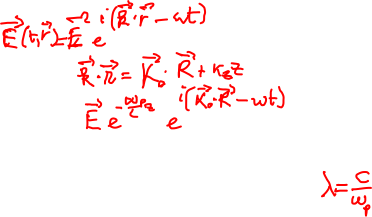 E⃗(t,r⃗)=E⃗ e^{i(k⃗·r⃗-ωt)}
k⃗·r⃗=K⃗₀·R⃗+k_z z
E⃗ e^{-\frac{ω_p}{c}z} e^{i(K⃗₀·R⃗-ωt)}
λ=\frac{c}{ω_p}